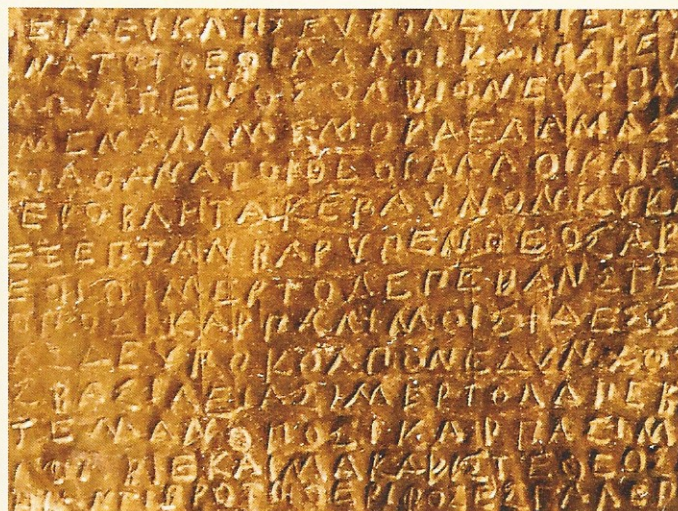 ΕΙΑΕΥΚΛΗΣΕΥΒΟΛΕΥΣ
ΝΑΤΟΙΘΕΟΙΑΛΛΟΙΚΑΙΓΑΡΕΓ
ΜΩΝΓΕΝΟΣΟΛΒΙΟΝΕΥΧΟΜ
ΙΜΕΝΑΛΑΜΕΜΟΡΑΕΔΑΜΑΣ
ΙΑΘΑΝΑΤΟΙΘΕΟΙΑΛΛΟΙΚΑΙΑ
ΕΡΟΒΛΗΤΑΚΕΡΑΥΝΟΝΚΥΚ
ΕΞΕΠΤΑΝΒΑΡΥΠΕΝΘΕΟΣΑΡ
ΕΟΙΟΙΜΕΡΤΟΔΕΠΕΒΑΝΣΤΕ
ΟΠΟΣΙΚΑΡΠΑΛΙΜΟΙΣΙΔΕΣΣ
ΑΣΔΕΥΠΟΚΟΛΠΟΝΕΔΥΝΧΘΟ
ΣΒΑΣΙΛΕΙΑΣΙΜΕΡΤΟΔΑΠΕΒ
ΤΕΜΑΝΟΠΟΣΙΚΑΡΠΑΣΙΜ
ΛΒΙΕΚΑΙΜΑΚΑΡΙΣΤΕΘΕΟΣ
ΑΝΤΙΒΡΟΤΟΙΟΕΡΙΦΟΣΕΣΓΑΛΕΠ